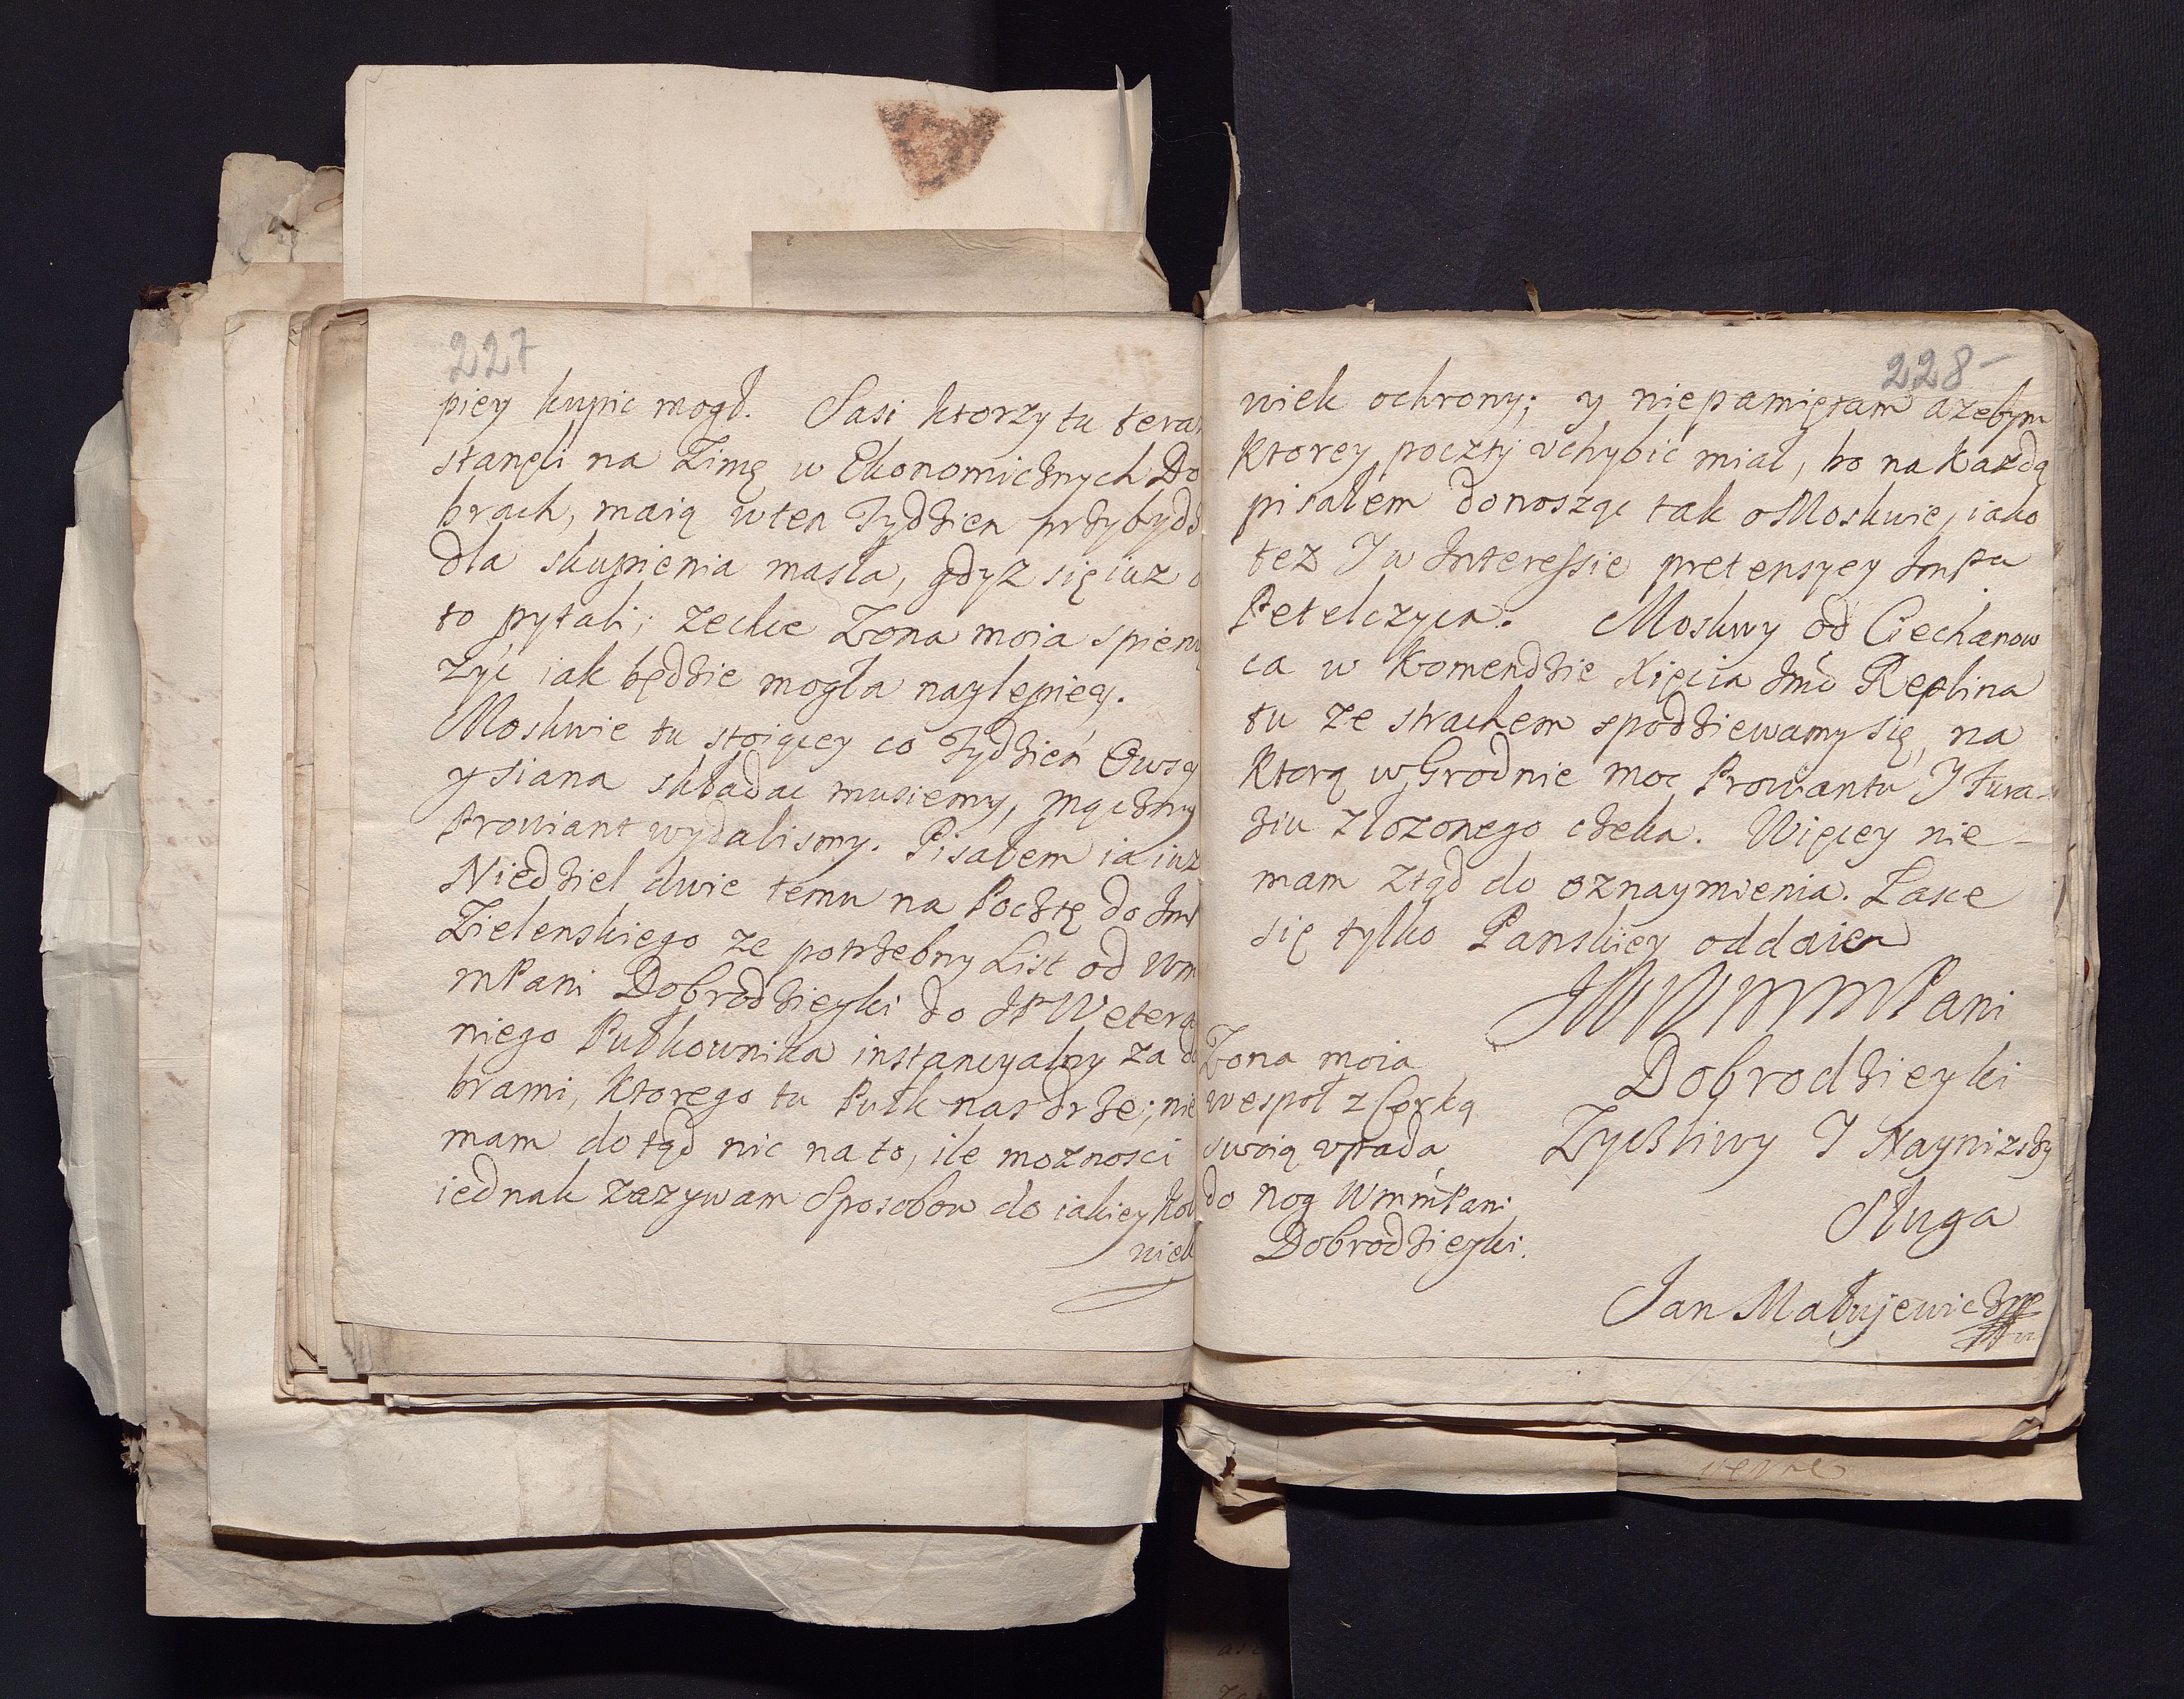 227
piey kupic mogł. Sasi ktorzy tu tera
stanęli na Zimę w Ekonomicznych Do
brach, maią w ten Tydzien przybydz
dla skupienia masła, gdyz się iuz o
to pytali; zechce Zona moia spienię
zyć iak będzie mogła naylepiey.
Moskwie tu stoiącey co Tydzień Owsa
y siana składac musiemy, mączny
Prowiant wydalismy. Pisałem ia iuz
Niedziel dwie temu na Pocztę do Jm
Zielenskiego ze potrzebny List od Wm
mPani Dobrodzieyki do JP Wetera
niego Pułkownika instancyalny za do
brami, ktorego tu Pułk nas drze; nie
mam dotąd nic na to, ile moznosci
iednak zazywam Sposobow do iakiey kol
wiek
228
wiek ochrony; y niepamiętam azebym
ktorey poczty vchybić miał, bo na kazdą
pisałem donosząc tak o Moskwie, iako
tez J w Interessie pretensyey JmPa
Petelczyca. Moskwy od Ciechanow
ca w Komendzie Xięcia Jmć Repnina
tu ze strachem spodziewamy się, na
ktorą w Grodnie moc Prowiantu J Fura-
ziu złozonego czeka. Więcey nie-
mam ztąd do oznaymienia. Łasce
się tylko Panskiey oddaię
JWWmmPani
Dobrodzieyki
Zyczliwy J Naynizszy
Sługa
Jan Matujewicz
Zona moia
wespoł z Corką
swoią vpada
do nog WmmPani
Dobrodzieyki.